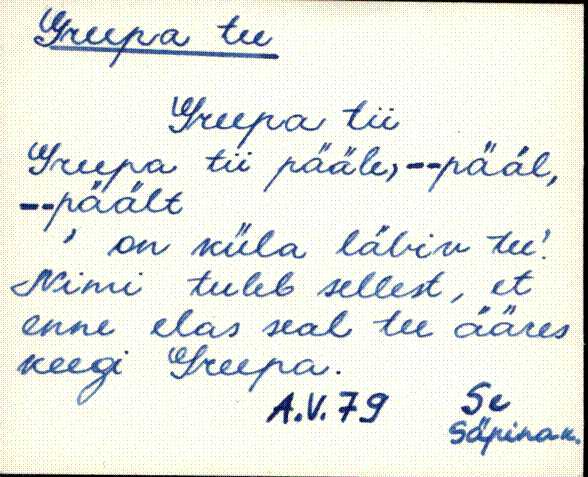 Greepa tee
Greepa tii
Greepa tii pääle, --pääl,
--päält
' on küla läbiv tee'.
Nimi tuleb sellest, et
enne elas seal tee ääres
keegi Greepa.
A.V. 79 Se
Säpina k.